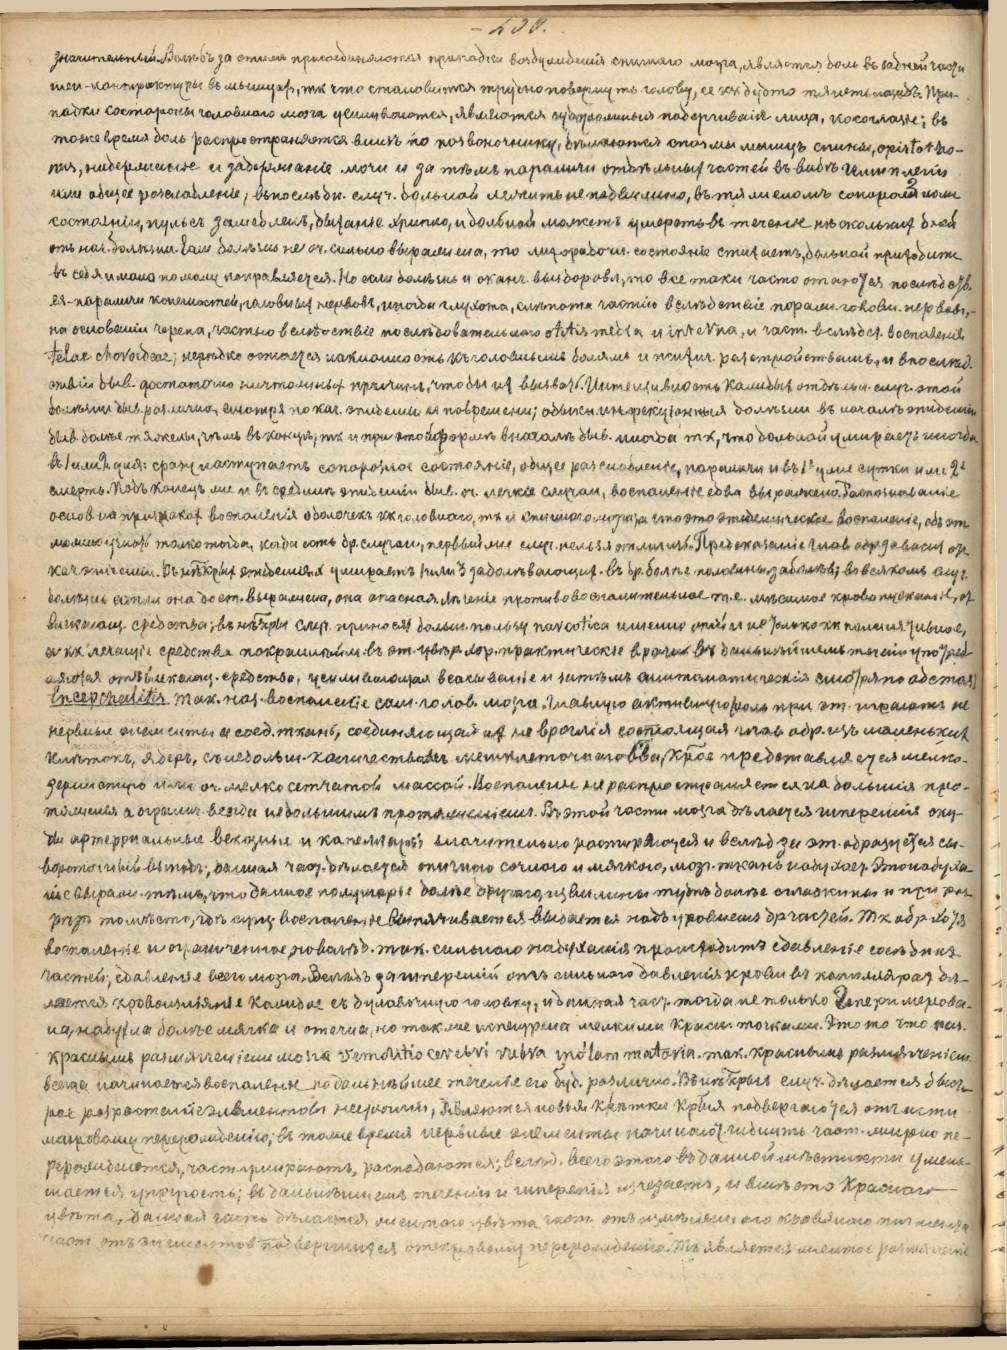 значительный. Вслѣдъ за этимъ присоединяются припадки возбужденія спиннаго мозга, является боль въ задней части
шеи - контрактуры въ мышцах, тк что становится трудно повернуть голову, ее как будто тянетъ назадъ. При-
падки со стороны головного мозга усиливаются, являются судорожныя подергиванія лица, косоглазіе; въ
тоже время боль распространяется внизъ по позвоночнику, дѣлаются спазмы мышцъ спины, opistotho-
nus, недержаніе и задержаніе мочи и за тѣмъ параличи отдѣльных частей въ видѣ геміплегій
или общее разслабленіе; въ послѣдн. случ. больной лежитъ неподвижно, въ тяжеломъ сопорозном
состояніи, пульсъ замедленъ, дыханіе хрипло, и больной можетъ умереть въ теченіе нѣсколькихъ дней
отъ нач. болѣзни. Если болѣзнь не оч. сильно выражена, то лихорадочн. состояніе стихаетъ, больной приходитъ
въ себя и мало по малу поправляется. Но если болѣзнь и оканч. выздоровл., то все таки часто остаются послѣдств.
ея - параличи конечностей, головных нервовъ, иногда глухота, слѣпота частію вслѣдствіе паралич. головн. нервовъ,
на основаніи черепа, частью вслѣдствіе послѣдовательнаго otitis media и interna, и част. вслѣдст. воспаленія
telae choroideae; нерѣдко остается наклонность къ головнымъ болямъ и психич. разстройствамъ, и впослѣд-
ствіи быв. достаточно ничтожных причинъ, чтобы их вызвать. Интенсивность каждых отдѣльн. случ. этой
болѣзни быв. различна, смотря по хар. эпидеміи и по времени; обыкн. инфекціонныя болѣзни въ началѣ эпидеміи
быв. болѣе тяжелы, чѣмъ въ концѣ, тк и при этой формѣ въ началѣ быв. иногда тк, что больной умираетъ иногда
въ 1 или 2 дня: сразу наступаетъ сопорозное состояніе, общее разслабленіе, параличи и въ 1е же сутки или 2е
смерть. Подъ конецъ же и въ срединѣ эпидеміи быв. оч. легкіе случаи, воспаленіе едва выражено. Распознаваніе
основ. на признаках воспаленія оболочекъ кк головнаго, тк и спиннаго мозга что это эпидемическое воспаленіе, объ эт
можно узнать только тогда, когда есть др. случаи, первый же случ. нельзя отличить. Предсказаніе глав. обр. зависит отъ
хар. эпидеміи. Въ нѣкрых эпидеміях умираетъ 1/3 заболѣвающих, въ др. болѣе половины заболѣв; во всякомъ случ.
болѣзнь если она дост. выражена, она опасная. Леченіе противовоспалительное т.е. мѣстное кровопусканіе, от
влекающ. средства; въ нѣкрых случ. приносят больш. пользу narcotica именно опій и не только кк палліативное,
а кк лечащіе средства
Encephalitis. Так. наз. воспаленіе сам. голов. мозга. Главную активную роль при эт. играютъ не
нервные элементы а соед. ткань, соединяющая их neuroglia состоящая глав. обр. изъ маленьких
клѣтокъ, ядеръ, съ небольш. количествомъ межклѣточнаго в-ва, кртое представляется мелко-
зернистою или оч. мелко сѣтчатой массой. Воспаленіе не распространяется на большія про-
тяженія а огранич. всегда небольшимъ протяженіемъ. Въ этой части мозга дѣлается гиперемія сосу-
ды артеріальные венозные и капиллярн. значительно растягиваются и вслѣд за эт. образуется сы-
вороточный выпотъ; данная част. дѣлается отечною сочною и мягкою, мозг. ткань набухает. Это набуха-
ніе выраж. тѣмъ, что данное полушаріе болѣе другаго, извилины тутъ болѣе сглажены и при раз-
рѣзѣ то мѣсто, гдѣ сущ. воспаленіе выпячивается выдается надъ уровнемъ др. частей.
воспаленіе и ограниченное но вслѣд. так. сильнаго набуханія происходитъ сдавленіе сосѣдних
частей, сдавленіе всего мозга. Вслѣдъ за гипереміей отъ сильнаго давленія крови въ капиллярах дѣ-
лается кровоизліяніе каждое съ булавочную головку, и данная част. тогда не только гиперемирова-
на, набухла болѣе мягка и отечна, но также испещрена мелкими красн. точками. Это то что наз.
краснымъ размягченіемъ мозга remolitio cerebri rubra inflammatoria. так. краснымъ размягченіем
всегда начинается воспаленіе но дальнѣйшее теченіе его буд. различно. Въ нѣкрых случ. дѣлается быст-
рое разрастаніе элементовъ нейрогліи, являются новыя клѣтки кртыя подвергаются отчасти
жировому перерожденію; въ тоже время нервные элементы начинают гибнуть част. жирно пе-
рерождаются, част. умираютъ, распадаются; вслѣд. всего этого въ данной мѣстности умень-
шается упругость; въ дальнѣйшемъ теченіи и гиперемія исчезаетъ, и вмѣсто краснаго
цвѣта, данная часть дѣлается желтаго цвѣта част. отъ измѣненнаго кровянаго пигмента
част. отъ элементовъ подвергшихся жировому перерожденію. Тк является желтое размягченіе